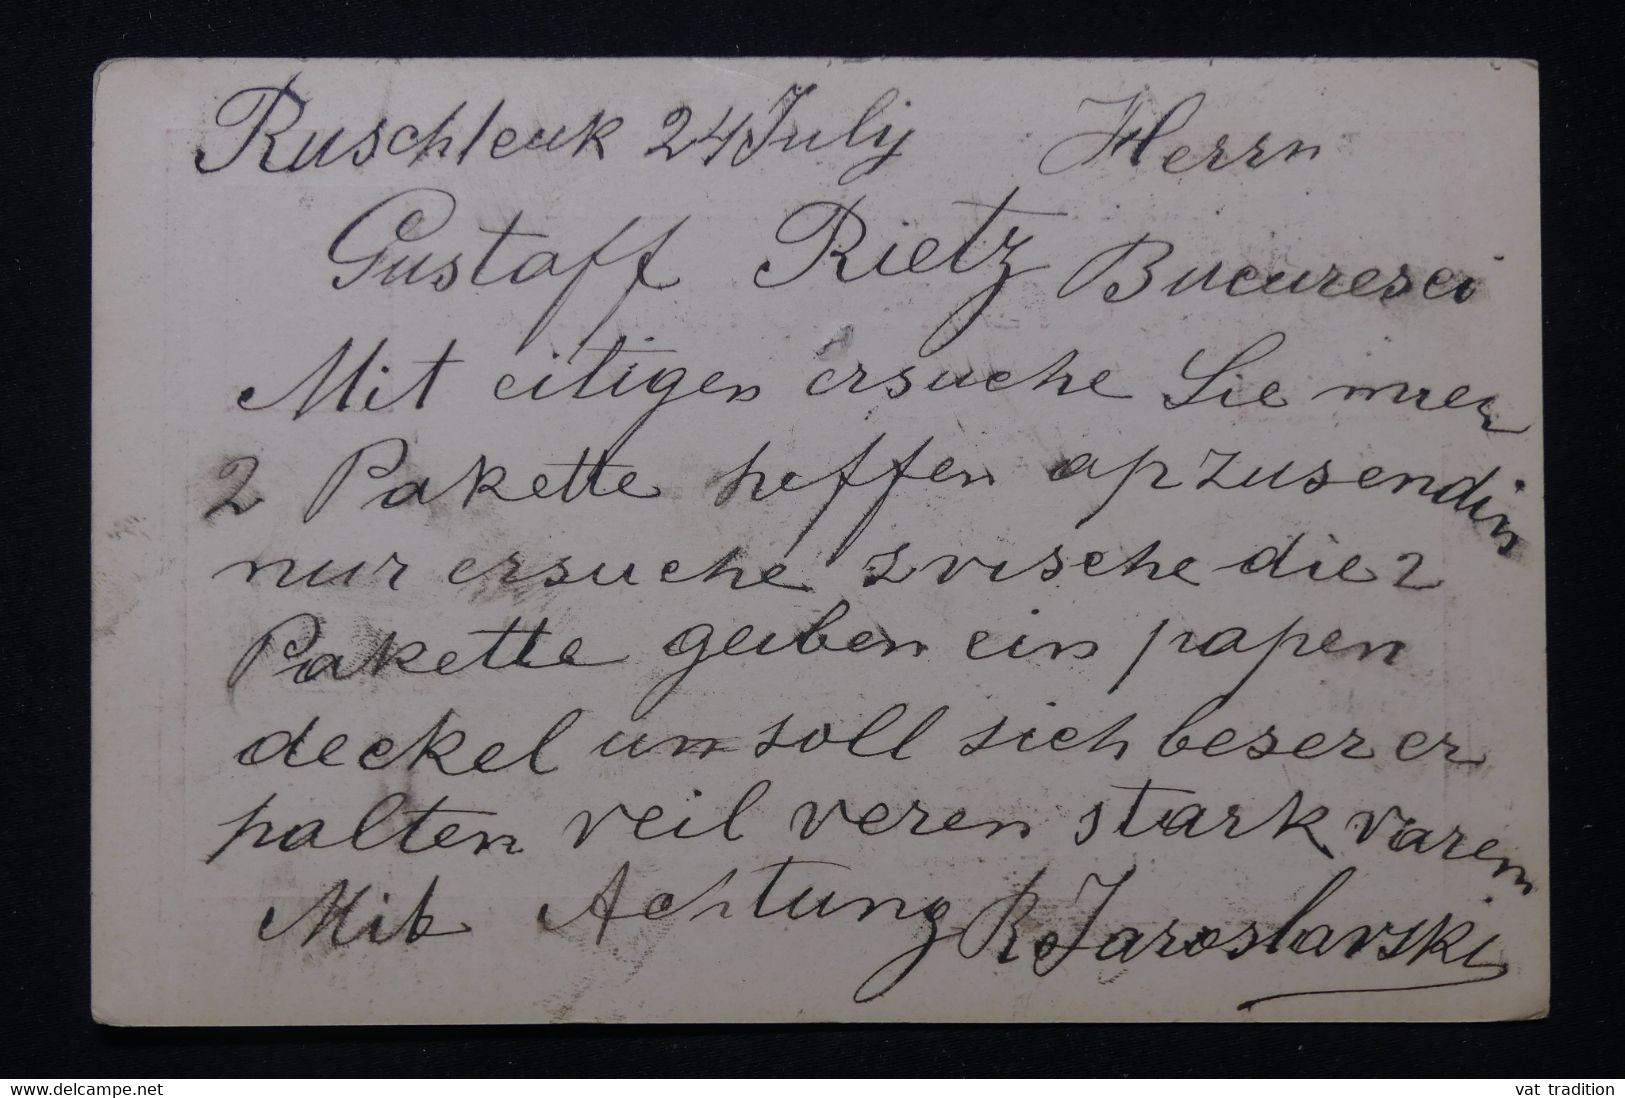 Ruschtcuk 24 July Herrn
Gustaff Rietz Bucuresci
Mit eiligen ersuche Sie
2 Pakette heffen apzusendin
nur ersuche zvische die 2
Pakette geiben ein papen
deckel un soll sich beser er
halten veil veren stark varem
Mit Achtung R Jaroslavski
www.delcampe.net
vat_tradition